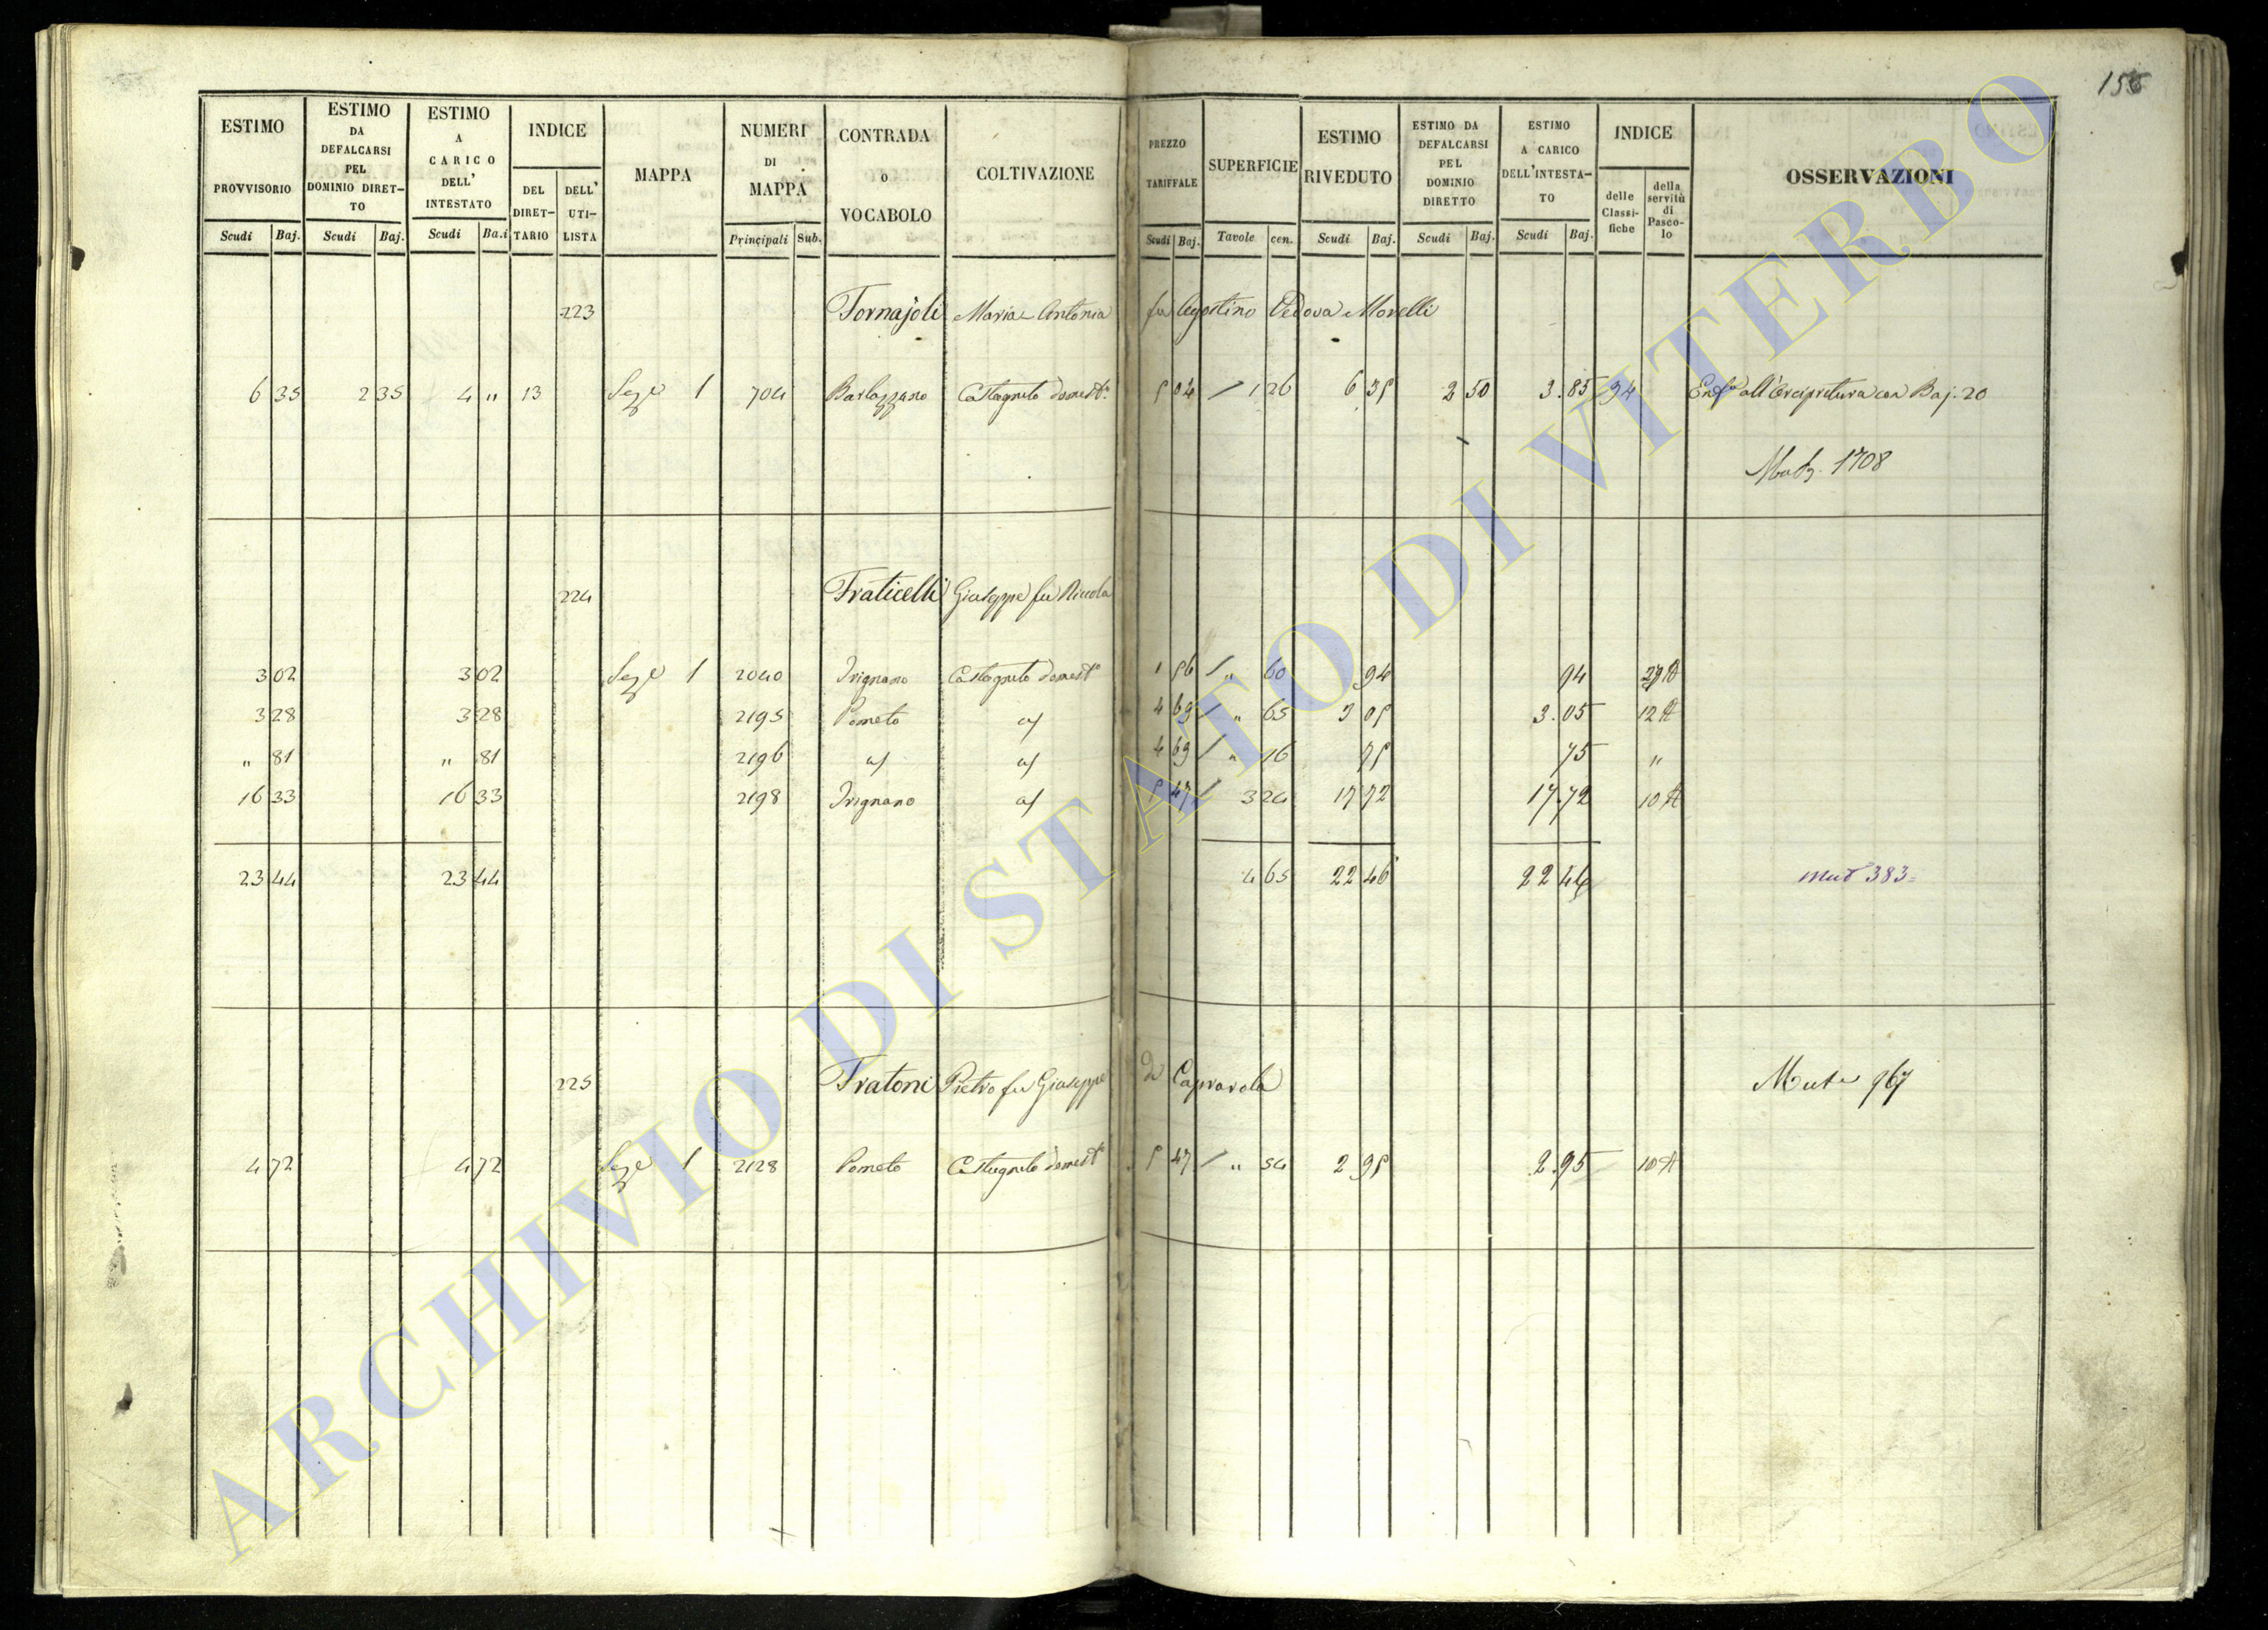 156
ESTIMO PROVVISORIO
ESTIMO DA DEFALCARSI PEL DOMINIO DIRET-TO
ESTIMO A CARICO DELL' INTESTATO
INDICE
DEL DIRET-TARIO
DELL' UTI-LISTA
MAPPA
NUMERI DI MAPPA
CONTRADA O VOCABOLO
COLTIVAZIONE
PREZZO TARIFFALE
SUPERFICIE
ESTIMO RIVEDUTO
ESTIMO DA DEFALCARSI PEL DOMINIO DIRETTO
ESTIMO A CARICO DELL'INTESTA-TO
INDICE
delle Classi-fiche
della servitù di Pasco-lo
OSSERVAZIONI
Scudi Baj. Scudi Baj. Scudi Ba.i Principali Sub. Scudi Baj. Tavole cen. Scudi Baj. Scudi Baj. Scudi Baj.
223 Fornajoli Maria Antonia fu Agostino Vedova Morelli
6 35 2 35 4 " 13 Sezze 1 704 Barlazzano Castagneto domest° 5 04 / 1 26 6 35 2 50 3.85 94 all'Arcipretura con Baj. 20
1708
224 Fraticelli Giuseppe fu Niccola
3 02 3 02 Sezze 1 2040 Irignano Castagneto domest° 1 56 / " 60 94 94 27 A
3 28 3 28 2195 Pometo a/ 4 69 / " 65 3 05 3.05 12 A
" 81 " 81 2196 a/ a/ 4 69 / " 16 75 75 "
16 33 16 33 2198 Irignano a/ 5 47 / 3 24 17 72 17.72 10 A
23 44 23 44 4 65 22 46 22 46 mut 383=
225 Fratoni Pietro fu Giuseppe di Caprarola Muta 967
4 72 4 72 Sezze 1 2128 Pometo Castagneto domest° 5 47 / " 54 2 95 2.95 10 A
ARCHIVIO DI STATO DI VITERBO